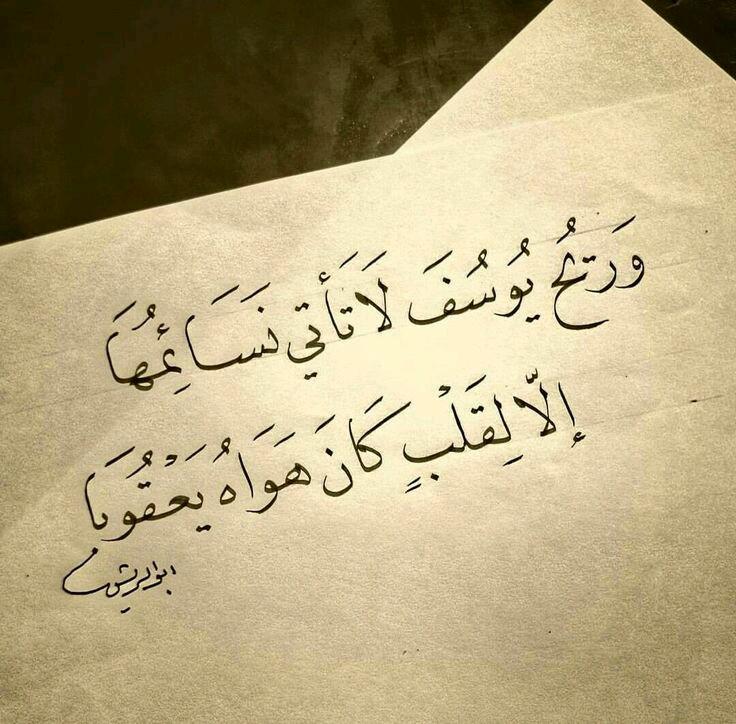 وَرِيْحُ يُوسُفَ لَا تَأْتي نَسَائِمُهَا
إلّا لِقَلْبٍ كَانَ هَوَاهُ يَعْقُوبَا